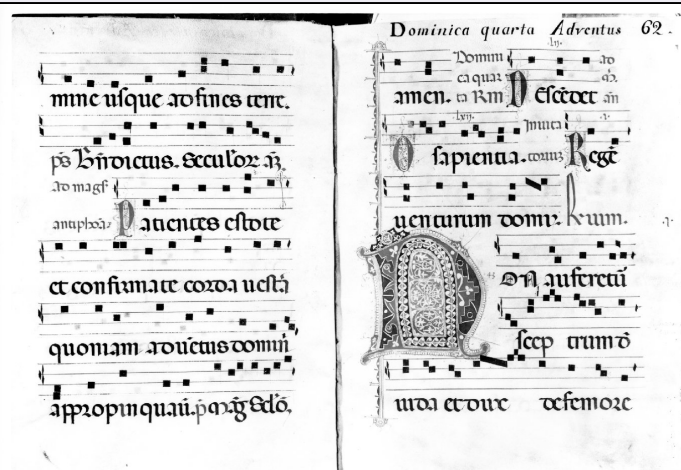 mine usque ad fines terre.
ps Bñdictus. Seculor̄ añ
ad magt̄
antiphōa. Patientes estote
et confirmate corda uestā
quoniam aduētus domini
appropinquau̅. p̄ mag̅ Sclō.
Dominica quarta Adventus 62.
Domini
ca quar
amen. ta Rm̄ Descēdet
lxij. Inuita
O sapientia. toriuȝ Regē
uenturum domi. Rium.
Nō auferetū
scep trum dō
iuda et dux de femore